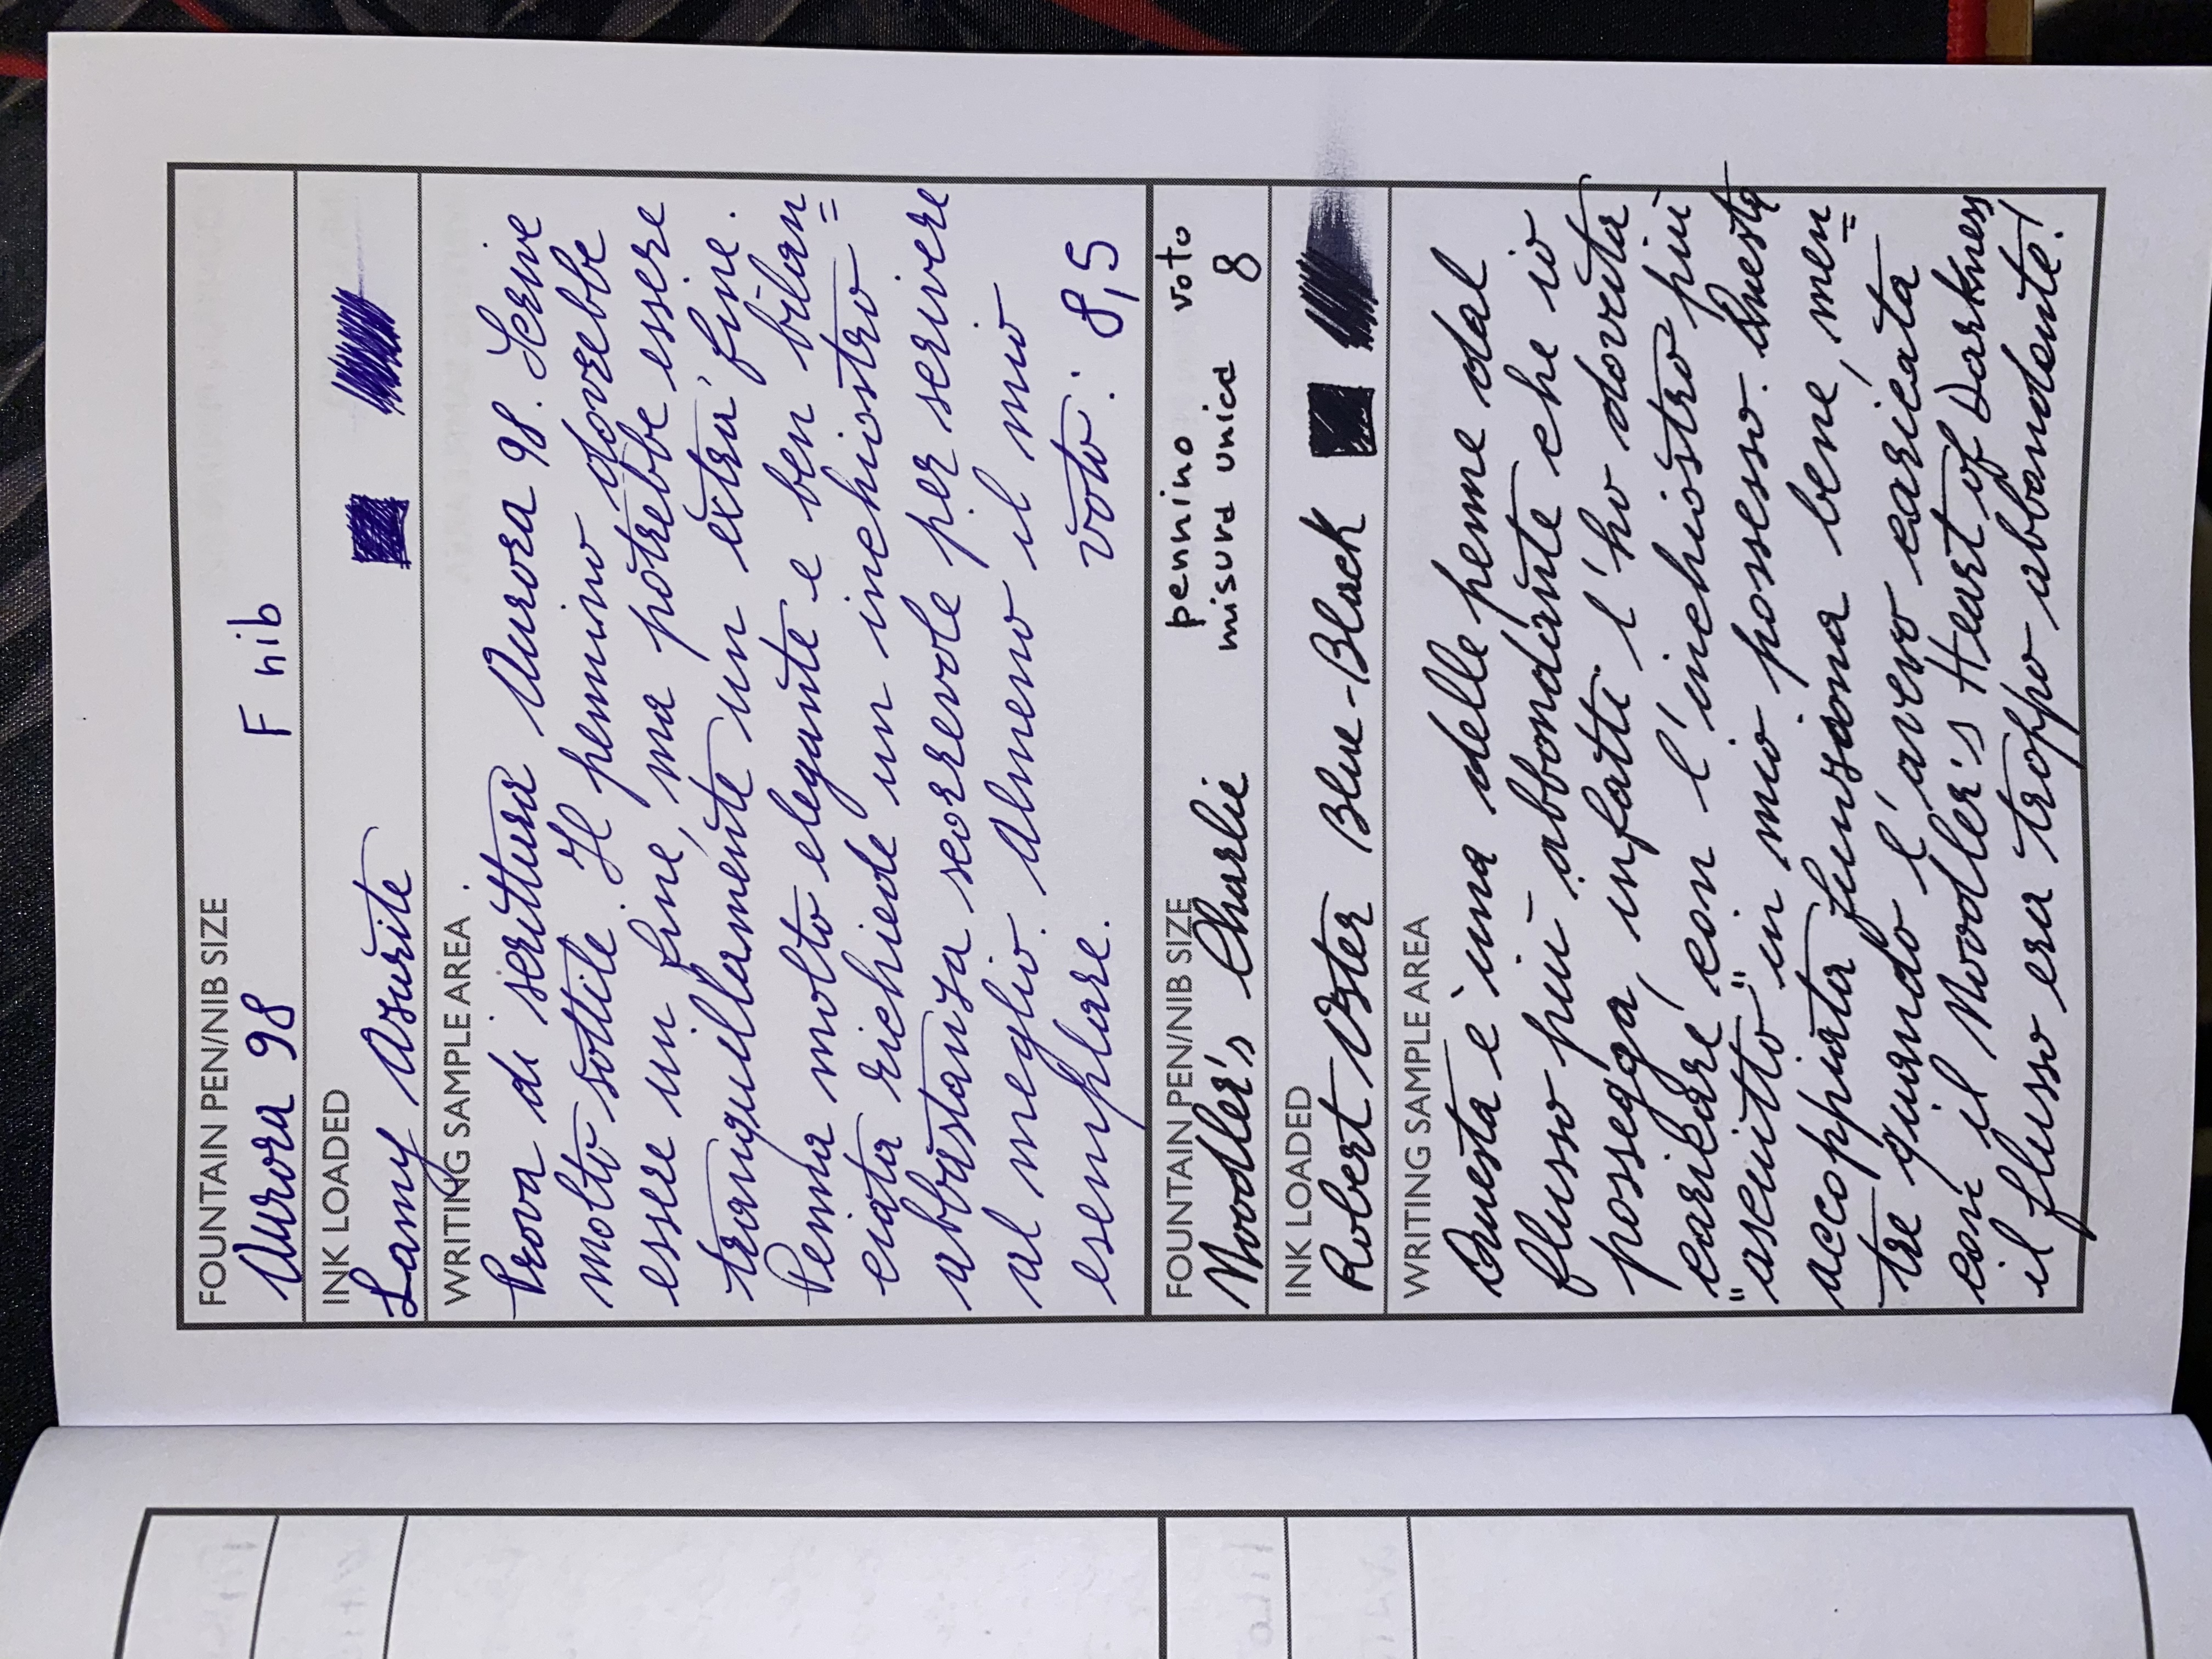 FOUNTAIN PEN/NIB SIZE
Aurora 98 F nib
INK LOADED
Lamy Azurite
WRITING SAMPLE AREA
Prova di scrittura Aurora 98. Scrive
molto sottile. Il pennino dovrebbe
essere un fine, ma potrebbe essere
tranquillamente un extra fine.
Penna molto elegante e ben bilan=
ciata richiede un inchiostro
abbastanza scorrevole per scrivere
al meglio. Almeno il mio
esemplare. voto: 8,5
FOUNTAIN PEN/NIB SIZE pennino voto
Moodler's Charlie misura unica 8
INK LOADED
Robert Oster Blue-Black
WRITING SAMPLE AREA
Questa è una delle penne dal
flusso più abbondante che io
possegga, infatti l'ho dovuta
caricare con l'inchiostro più
"asciutto" in mio possesso. Questa
accoppiata funziona bene, men=
tre quando l'avevo caricata
con il Moodler's Heart of Darkness
il flusso era troppo abbondante!